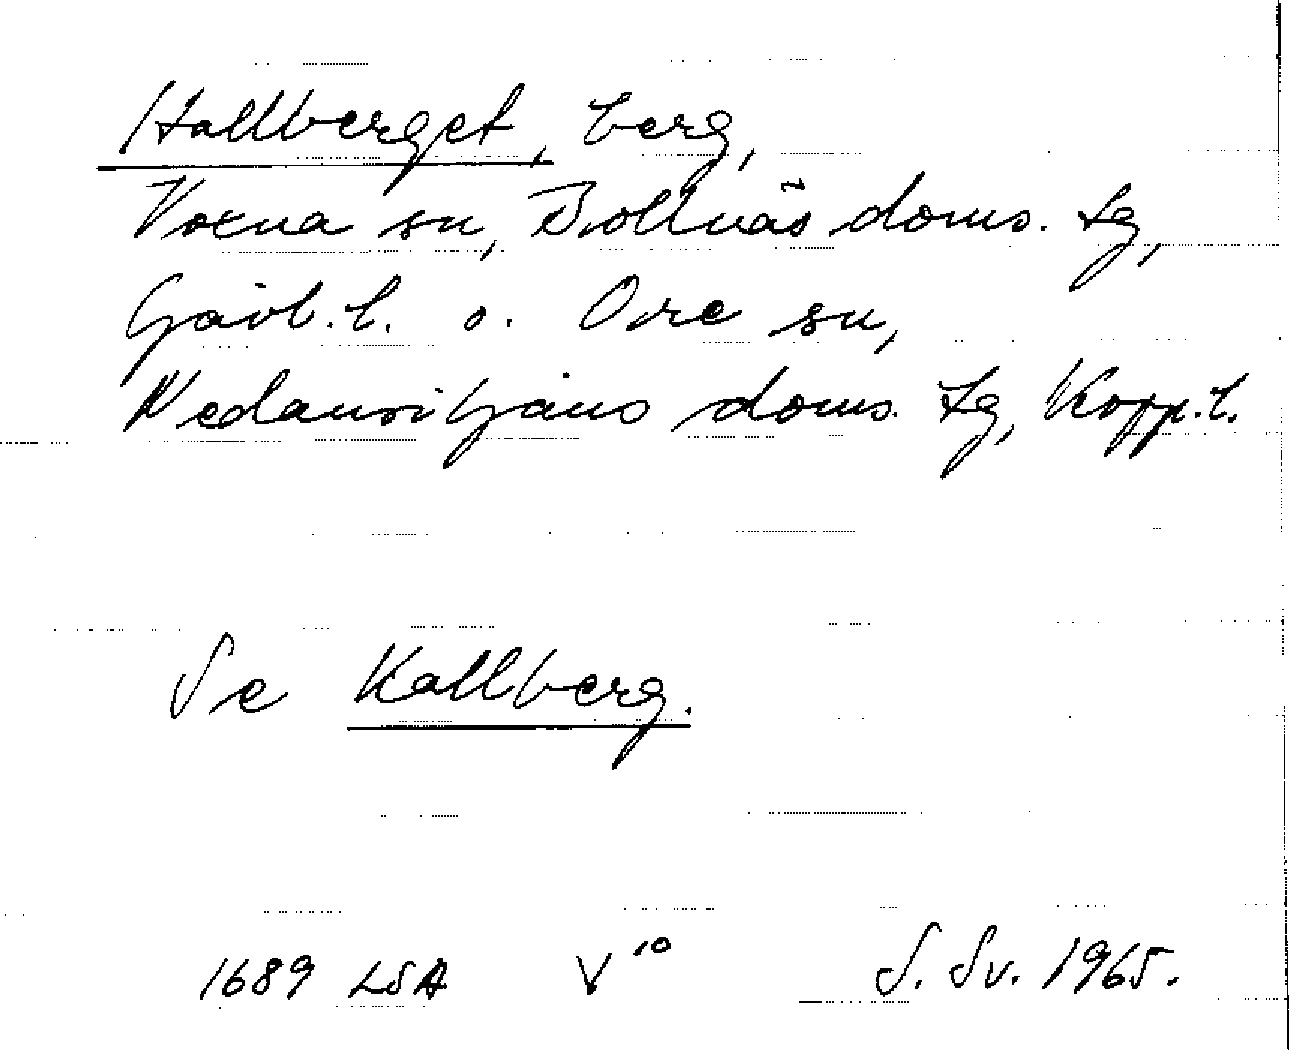 Hallberget, berg,
Voxna sn, Bollnäs doms. tg,
Gävl.l. o. Ore sn,
Nedansiljans doms. tg, Kopp.l.
Se Kallberg.
1689 LSA V¹⁰ S. Sv. 1965.